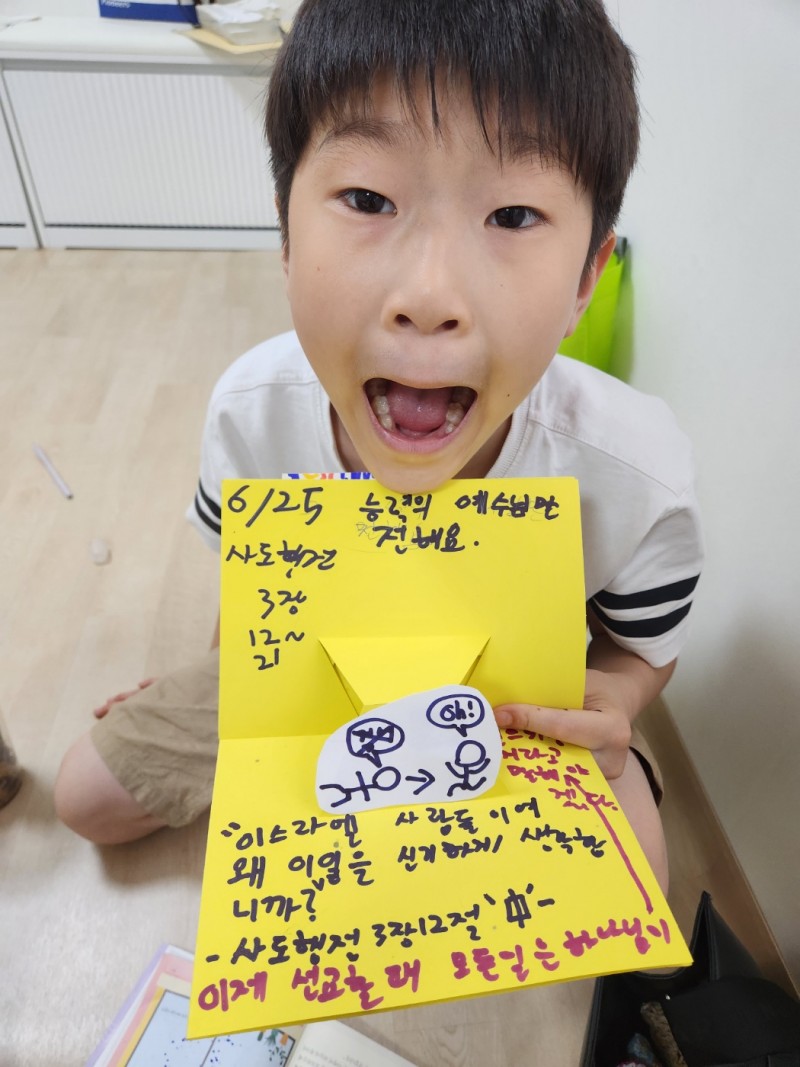 6/25 능력의 예수님만
전해요.
사도행전
3장
12~
21
oh!
"이스라엘 사람들이여
왜 이일을 신기하게 생각합
니까?"
-사도행전 3장12절 '中'-
이제 선교할 때 모든일은 하나님이
말해야